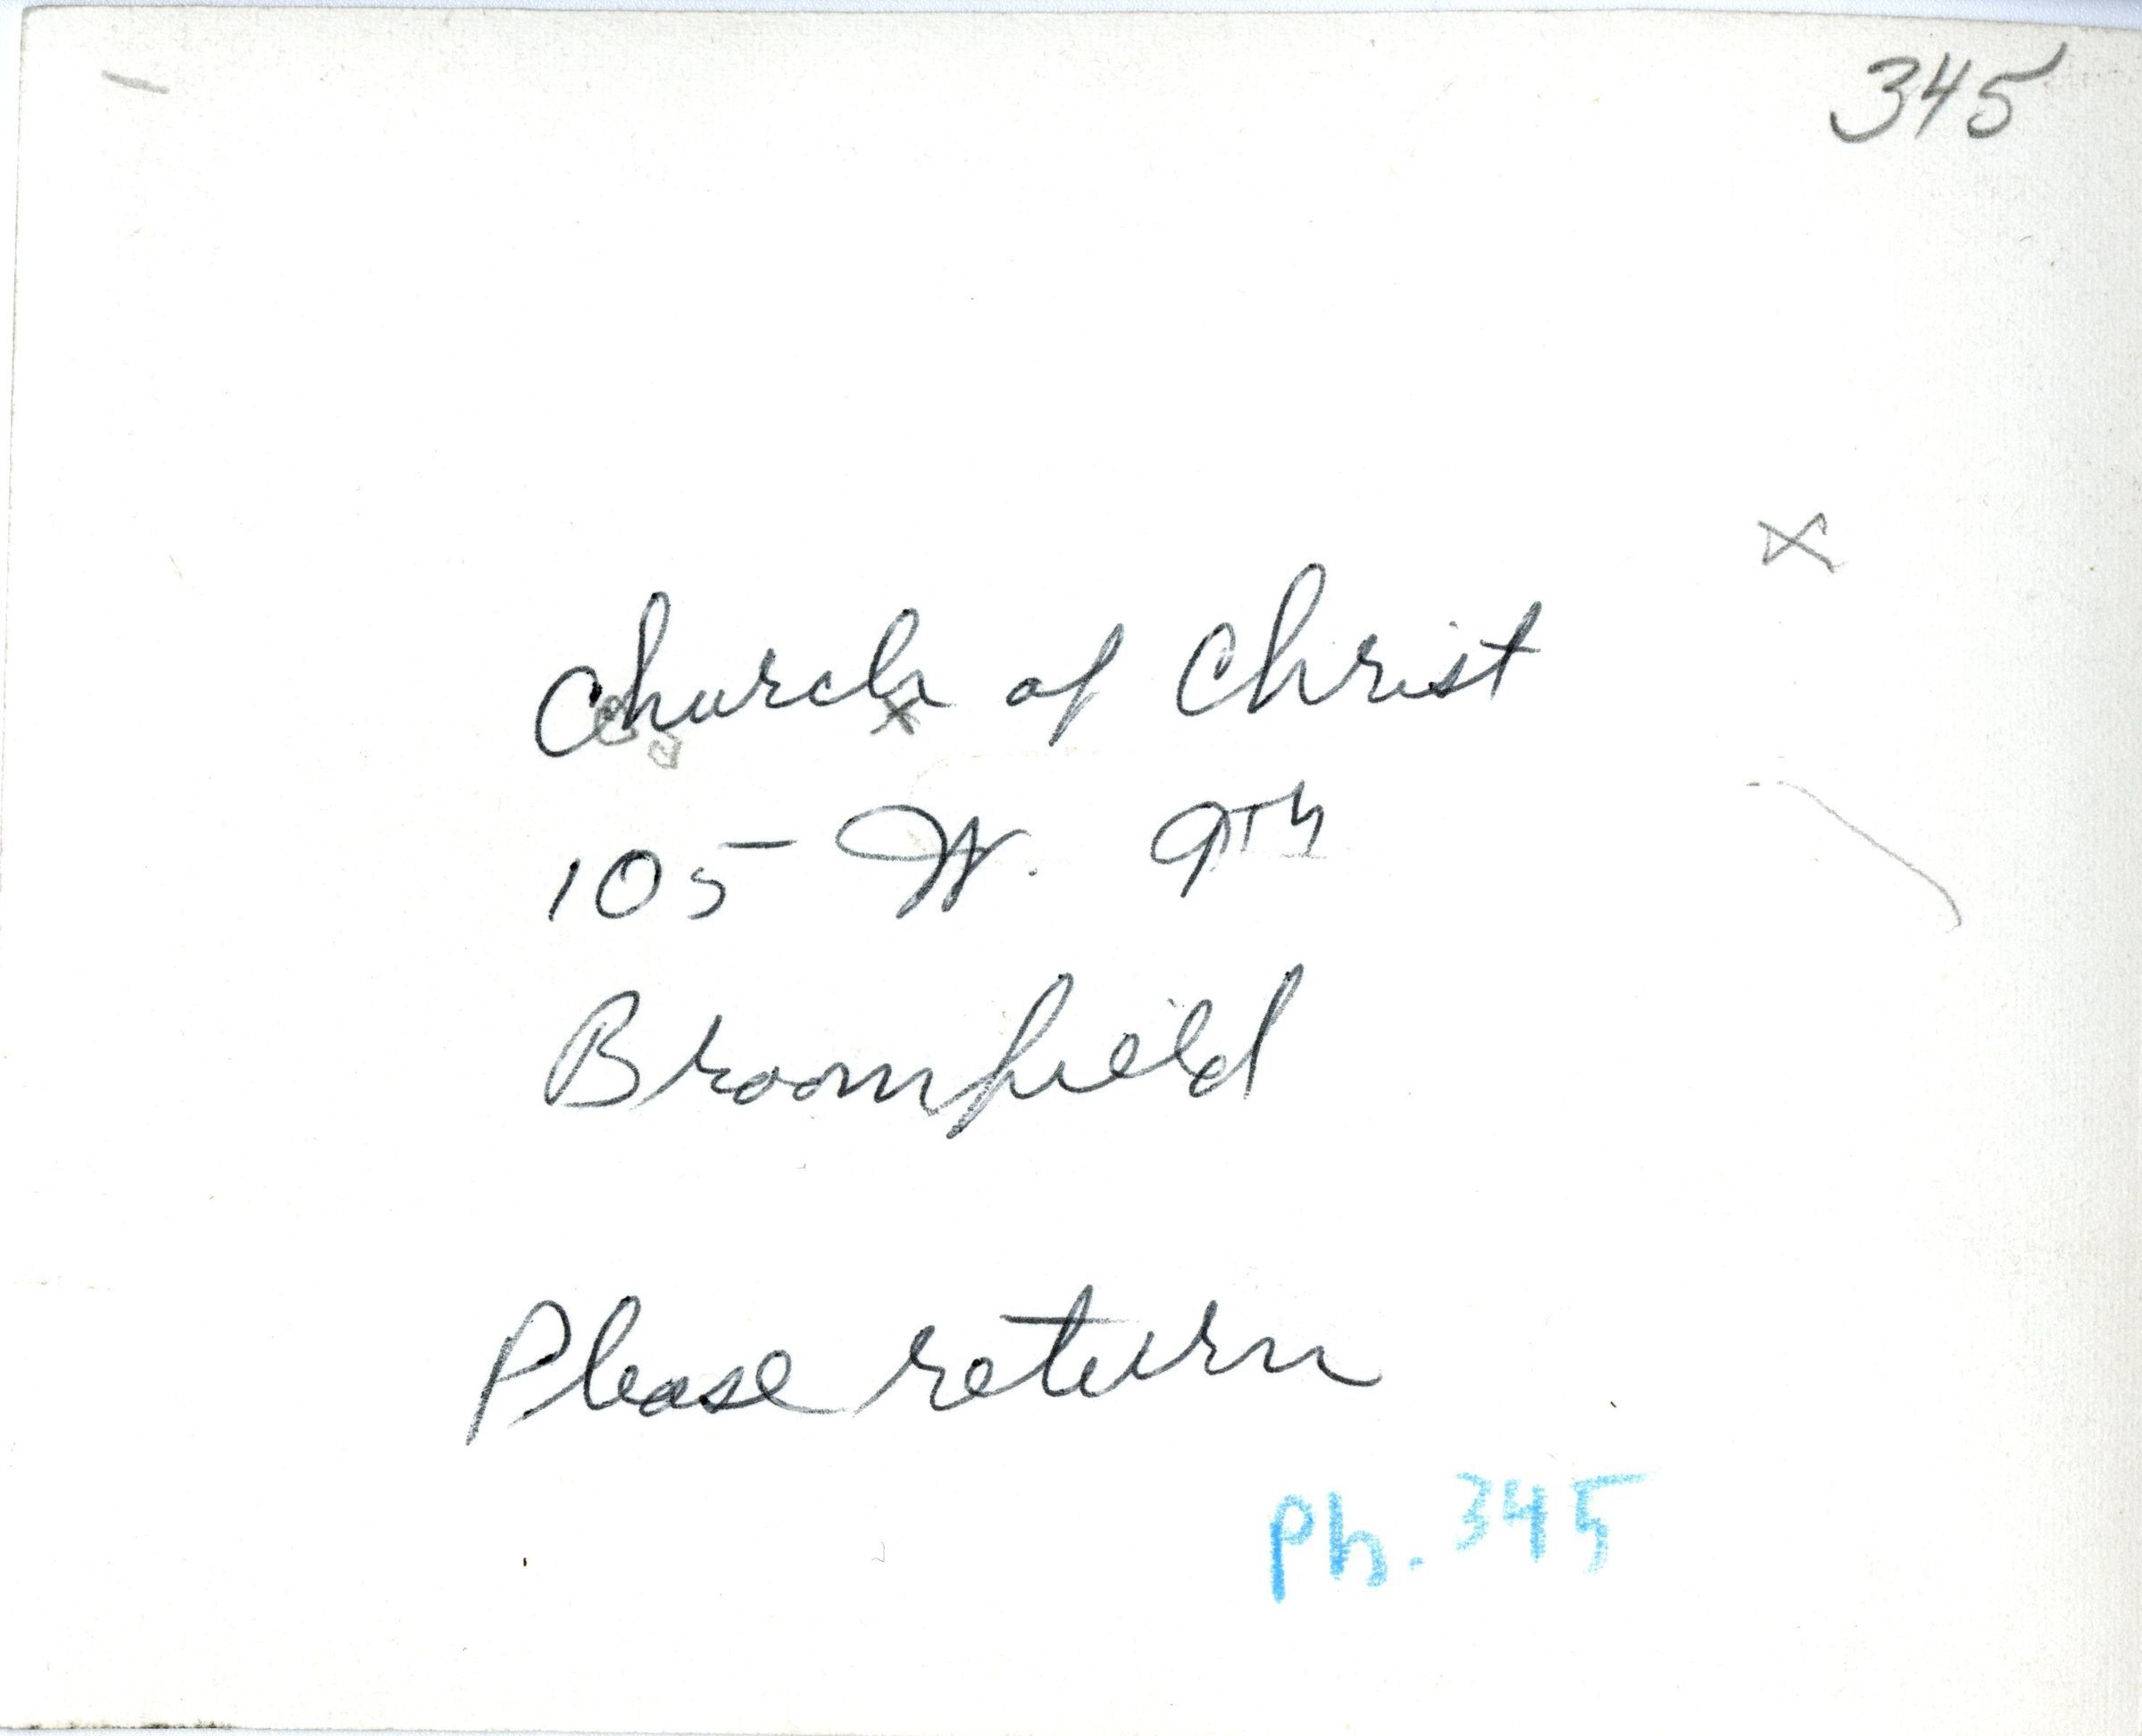 345
Church of Christ
105 W. 9th
Broomfield
Please return
Ph. 345